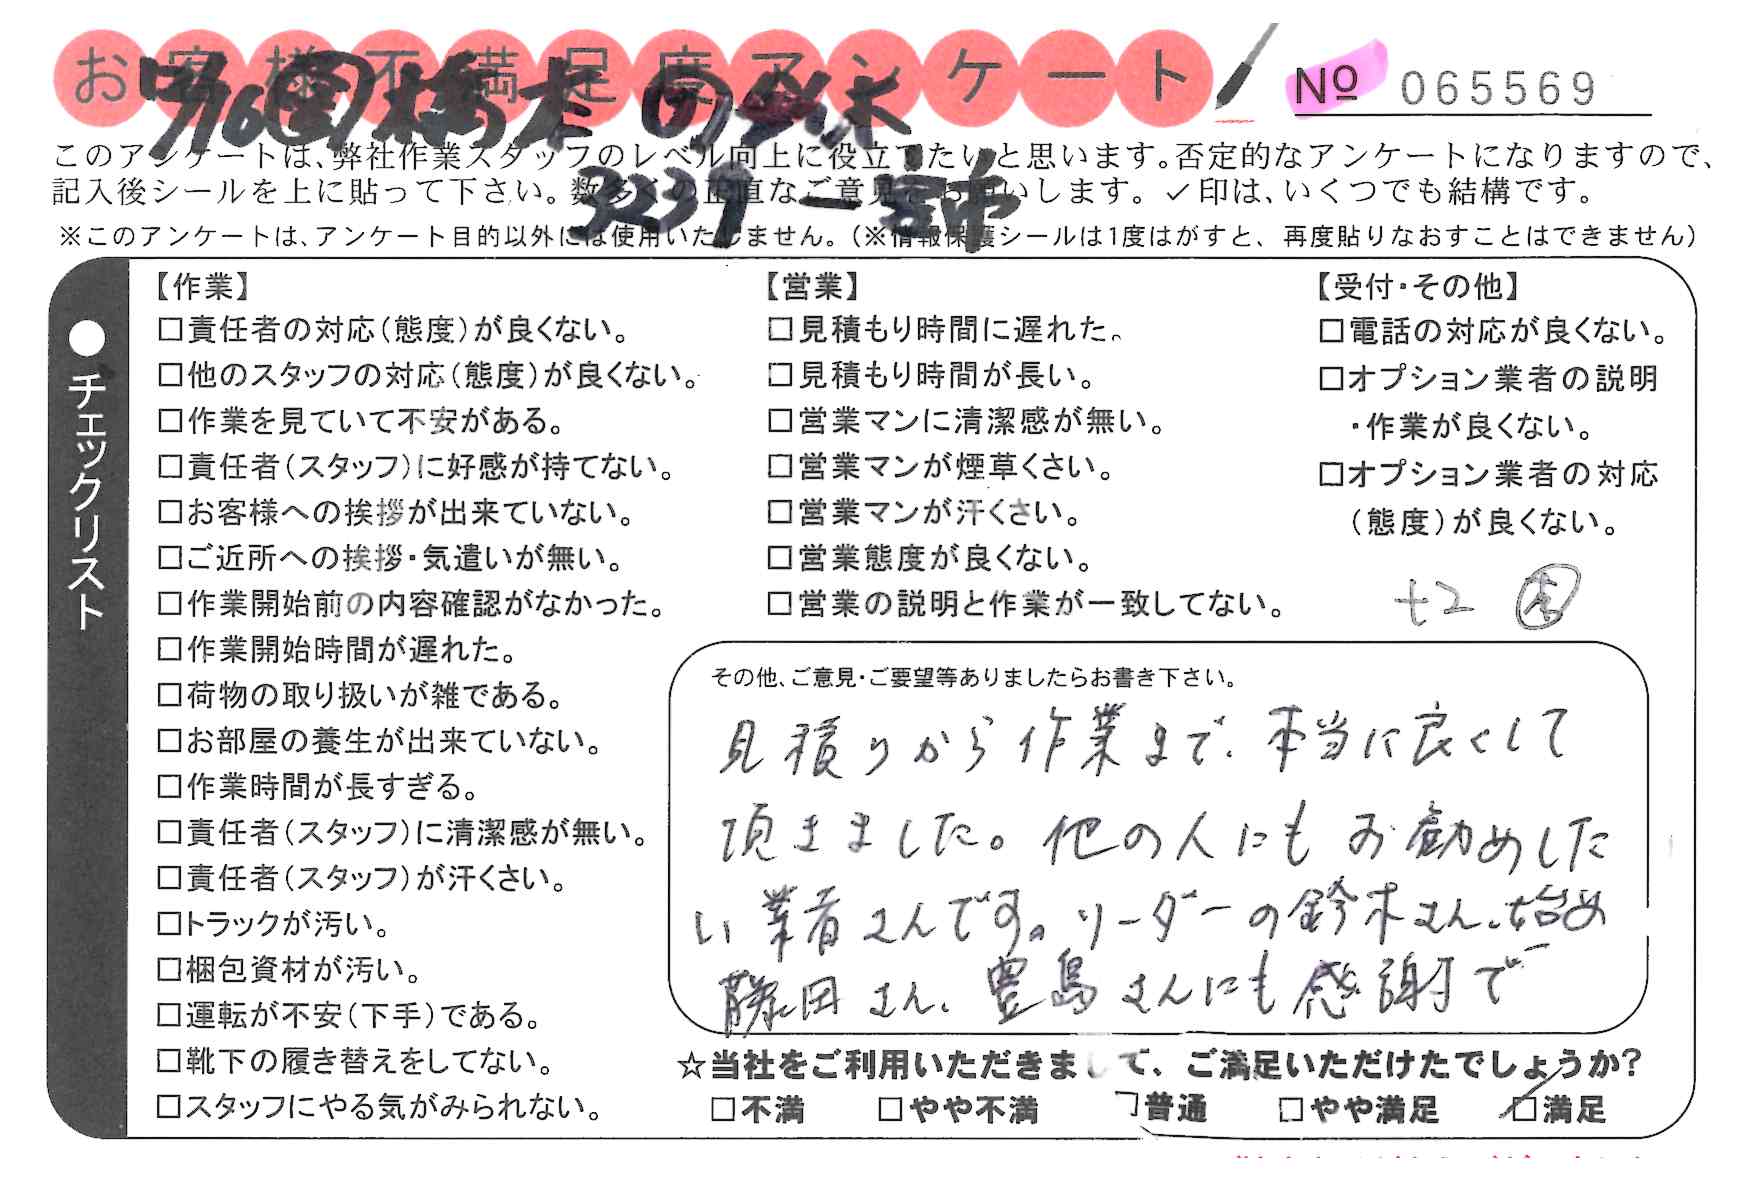 お客様不満足度アンケート
№ 065569
このアンケートは、弊社作業スタッフのレベル向上に役立てたいと思います。否定的なアンケートになりますので、
記入後シールを上に貼って下さい。数多くの正直なご意見をお願いします。✓印は、いくつでも結構です。
3239
※このアンケートは、アンケート目的以外には使用いたしません。（※情報保護シールは1度はがすと、再度貼りなおすことはできません）
●チェックリスト
【作業】
□責任者の対応（態度）が良くない。
□他のスタッフの対応（態度）が良くない。
□作業を見ていて不安がある。
□責任者（スタッフ）に好感が持てない。
□お客様への挨拶が出来ていない。
□ご近所への挨拶・気遣いが無い。
□作業開始前の内容確認がなかった。
□作業開始時間が遅れた。
□荷物の取り扱いが雑である。
□お部屋の養生が出来ていない。
□作業時間が長すぎる。
□責任者（スタッフ）に清潔感が無い。
□責任者（スタッフ）が汗くさい。
□トラックが汚い。
□梱包資材が汚い。
□運転が不安（下手）である。
□靴下の履き替えをしてない。
□スタッフにやる気がみられない。
【営業】
□見積もり時間に遅れた。
□見積もり時間が長い。
□営業マンに清潔感が無い。
□営業マンが煙草くさい。
□営業マンが汗くさい。
□営業態度が良くない。
□営業の説明と作業が一致してない。
【受付・その他】
□電話の対応が良くない。
□オプション業者の説明
・作業が良くない。
□オプション業者の対応
（態度）が良くない。
その他、ご意見・ご要望等ありましたらお書き下さい。
見積りから作業まで、本当に良くして
頂きました。他の人にもお勧めした
い業者さんです。リーダーの鈴木さん、始め
藤田さん、豊島さんにも感謝で
☆当社をご利用いただきまして、ご満足いただけたでしょうか?
□不満 □やや不満 □普通 □やや満足 ☑満足